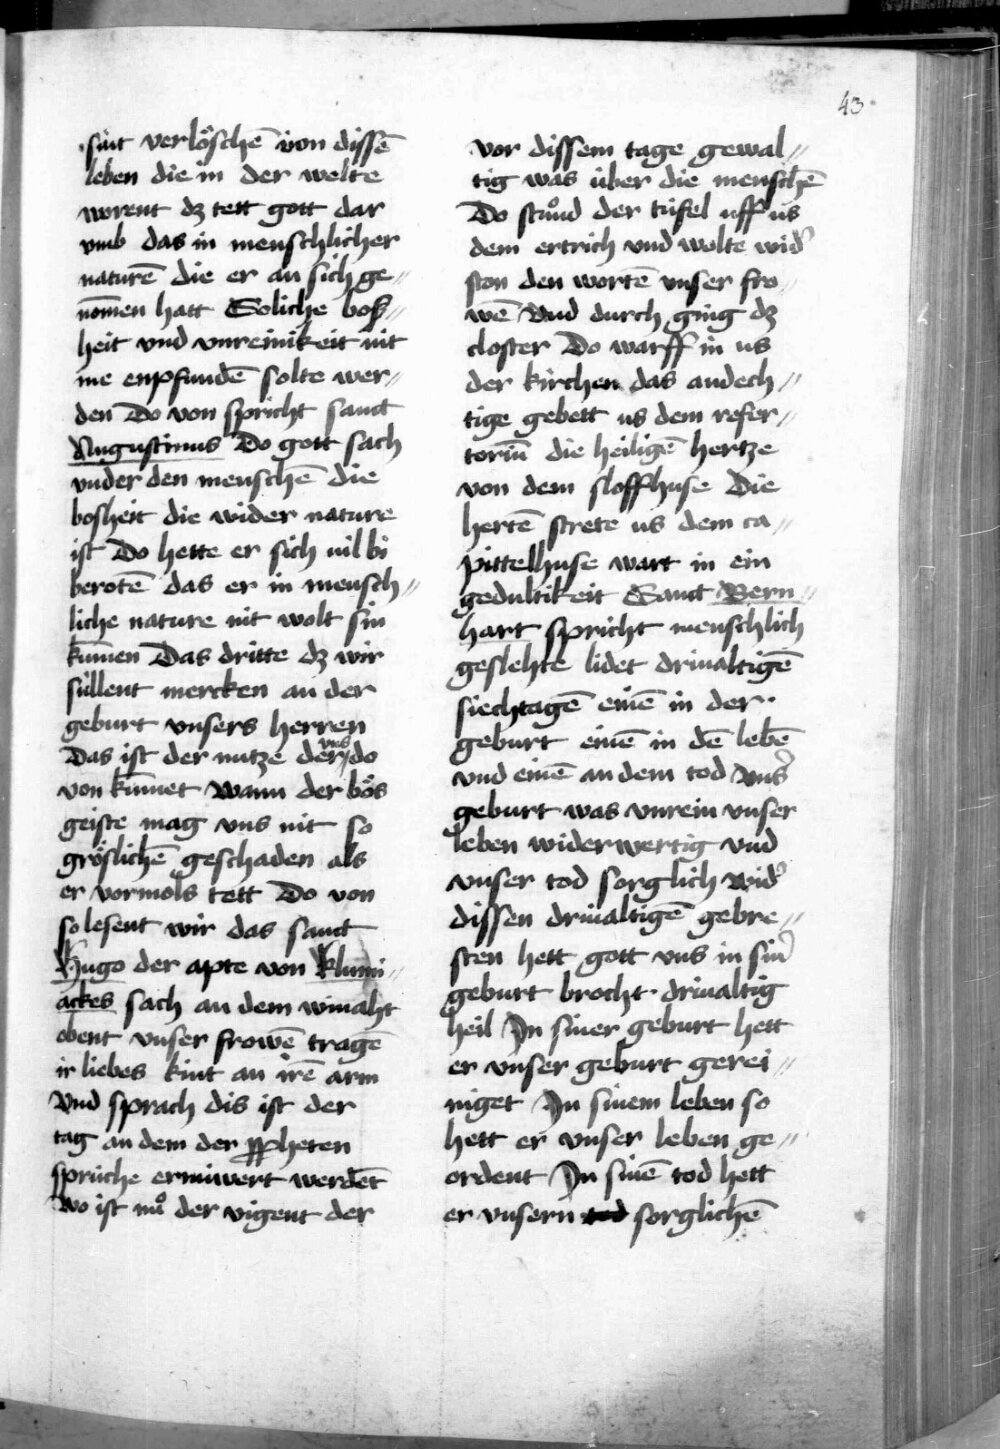 43
sint verlöschē von dissē
leben die in der welte
worent dz tett gott dar
vmb das in menschlicher
naturē die er an sich ge〃
nōmen hatt Soliche bos〃
heit vnd vnreinikeit nit
me enpfundē solte wer〃
den Do von spricht sanct
Augustinus Do gott sach
vnder den menschē die
bosheit die wider nature
ist Do hette er sich vil bi
berotē das er in mensch〃
liche nature nit wolt sin
kūmen Das dritte dz wir
süllent mercken an der
geburt vnsers herren
Das ist der nutze der vns do
von kūmet Wann der bös
geiste mag vns nit so
gröslichē geschaden als
er vormols tett Do von
so lesent wir das sanct
Hugo der apte von kluni〃
ackes sach an dem winaht
obent vnser frowē tragē
ir liebes kint an irē arm
Vnd sprach dis ist der
tag an dem der ꝓpheten
sprüche erniwert werdēt
Wo ist nuͦ der vigent der
vor dissem tage gewal〃
tig was über die menschē
Do stuͦnd der tüfel uff us
dem ertrich vnd wolte wid᾿
ston den wortē vnser fro〃
wē Vnd durch ging dz
closter Do warff in us
der kirchen das andech〃
tige gebett us dem refen〃
toriū die heiligē hertze
von dem sloffhuse Die
hertē strete us dem ca〃
pittelhuse wart in ein
gedultikeit Sanct Bern〃
hart spricht menschlich
geslehte lidet drivaltigē
siechtagē einē in der
geburt einē in dē lebē
vnd einē an dem tod Vns᾿
geburt was vnrein vnser
leben widerwertig vnd
vnser tod sorglich wid᾿
dissen drivaltigē gebre〃
sten hett gott vns in sin᾿
geburt brocht drivaltig
heil Jn siner geburt hett
er vnser geburt gerei〃
niget Jn sinem leben so
hett er vnser leben ge〃
ordent Jn sinē tod hett
er vnsern tod sorglichē